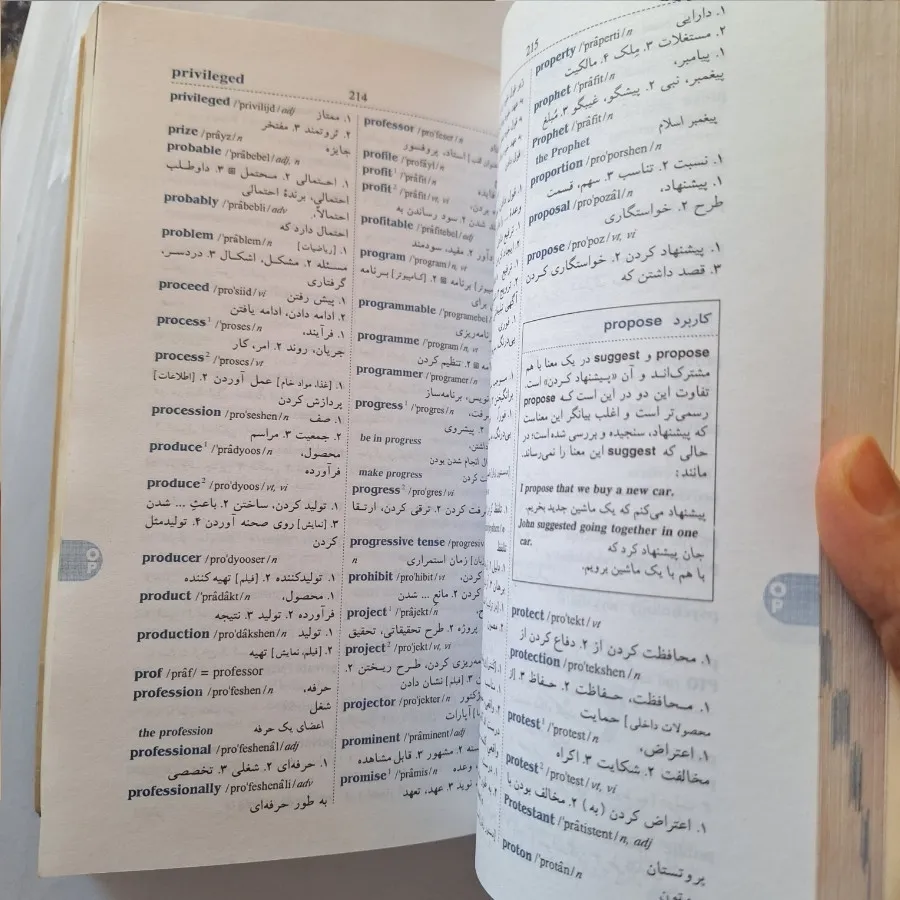 privileged
214
privileged /'privilijd/ adj ۱. ممتاز
۲. ثروتمند ۳. مفتخر
prize /prâyz/ n جایزه
probable /'prâbebel/ adj, n
۱. احتمالی ۲. محتمل ▣ ۳. داوطلب
احتمالی، برندهٔ احتمالی
probably /'prâbebli/ adv احتمالاً،
احتمال دارد که
problem /'prâblem/ n ۱. [ریاضیات]
مسئله ۲. مشکل، اشکال ۳. دردسر،
گرفتاری
proceed /pro'siid/ vi ۱. پیش رفتن
۲. ادامه دادن، ادامه یافتن
process¹ /'proses/ n ۱. فرآیند،
جریان، روند ۲. امر، کار
process² /'proses/ vt
۱. [غذا، مواد خام] عمل آوردن ۲. [اطلاعات]
پردازش کردن
procession /pro'seshen/ n ۱. صف
۲. جمعیت ۳. مراسم
produce¹ /'prâdyoos/ n محصول،
فرآورده
produce² /pro'dyoos/ vt, vi
۱. تولید کردن، ساختن ۲. باعثِ ... شدن
۳. [نمایش] روی صحنه آوردن ۴. تولیدمثل
کردن
producer /pro'dyooser/ n
۱. تولیدکننده ۲. [فیلم] تهیه کننده
product /'prâdâkt/ n ۱. محصول،
فرآورده ۲. تولید ۳. نتیجه
production /pro'dâkshen/ n ۱. تولید
۲. [فیلم، نمایش] تهیه
prof /prâf/ = professor
profession /pro'feshen/ n حرفه،
شغل
the profession اعضای یک حرفه
professional /pro'feshenâl/ adj
۱. حرفه‌ای ۲. شغلی ۳. تخصصی
professionally /pro'feshenâli/ adv
به طور حرفه‌ای
professor /pro'feser/ n
استاد، پروفسور
profile /'profâyl/ n
profit¹ /'prâfit/ n
profit² /'prâfit/ vt, vi
شدن ۲. سود رساندن به
profitable /'prâfitebel/ adj
۲. مفید، سودمند
program /'program/ n, vt
برنامه ▣ ۲. [کامپیوتر] برنامه
برای
programmable /'programebel
programme /'program/ n, vt
▣ ۲. تنظیم کردن
programmer /'programer/ n
برنامه‌ساز
progress¹ /'progres/ n
۲. پیشروی
be in progress
انجام شدن بودن
make progress
progress² /pro'gres/ vi
۲. ترقی کردن، ارتقا
progressive tense
n زمان استمراری
prohibit /pro'hibit/ vt
۲. مانعِ ... شدن
project¹ /'prâjekt/ n
پروژه ۲. طرح تحقیقاتی، تحقیق
project² /pro'jekt/ vt, vi
کردن، طرح ریختن ۲.
[فیلم] نشان دادن
projector /pro'jekter/ n
آپارات
prominent /'prâminent/ adj
۲. مشهور ۳. قابل مشاهده
promise¹ /'prâmis/ n وعده
۲. نوید ۳. عهد، تعهد
215
property /'prâperti/ n ۱. دارایی
۲. مستغلات ۳. مِلک ۴. مالکیت
prophet /'prâfit/ n ۱. پیامبر،
پیغمبر، نبی ۲. پیشگو، غیبگو ۳. مُبلغ
Prophet /'prâfit/ n
the Prophet پیغمبر اسلام
proportion /pro'porshen/ n
۱. نسبت ۲. تناسب ۳. سهم، قسمت
proposal /pro'pozâl/ n ۱. پیشنهاد،
طرح ۲. خواستگاری
propose /pro'poz/ vt, vi
۱. پیشنهاد کردن ۲. خواستگاری کردن
۳. قصد داشتن که
کاربرد propose
propose و suggest در یک معنا با هم
مشترک‌اند و آن «پیشنهاد کردن» است.
تفاوت این دو در این است که propose
رسمی‌تر است و اغلب بیانگر این معناست
که پیشنهاد، سنجیده و بررسی شده است؛ در
حالی که suggest این معنا را نمی‌رساند.
مانند:
I propose that we buy a new car.
پیشنهاد می‌کنم که یک ماشین جدید بخریم.
John suggested going together in one
car.
جان پیشنهاد کرد که
با هم با یک ماشین برویم.
protect /pro'tekt/ vt
۱. محافظت کردن از ۲. دفاع کردن از
protection /pro'tekshen/ n
۱. محافظت، حفاظت ۲. حفاظ ۳. [از
محصولات داخلی] حمایت
protest¹ /'protest/ n ۱. اعتراض،
مخالفت ۲. شکایت ۳. اکراه
protest² /pro'test/ vt, vi
۱. اعتراض کردن (به) ۲. مخالف بودن با
Protestant /'prâtistent/ n, adj
پروتستان
proton /'protân/ n
پروتون
OP
OP